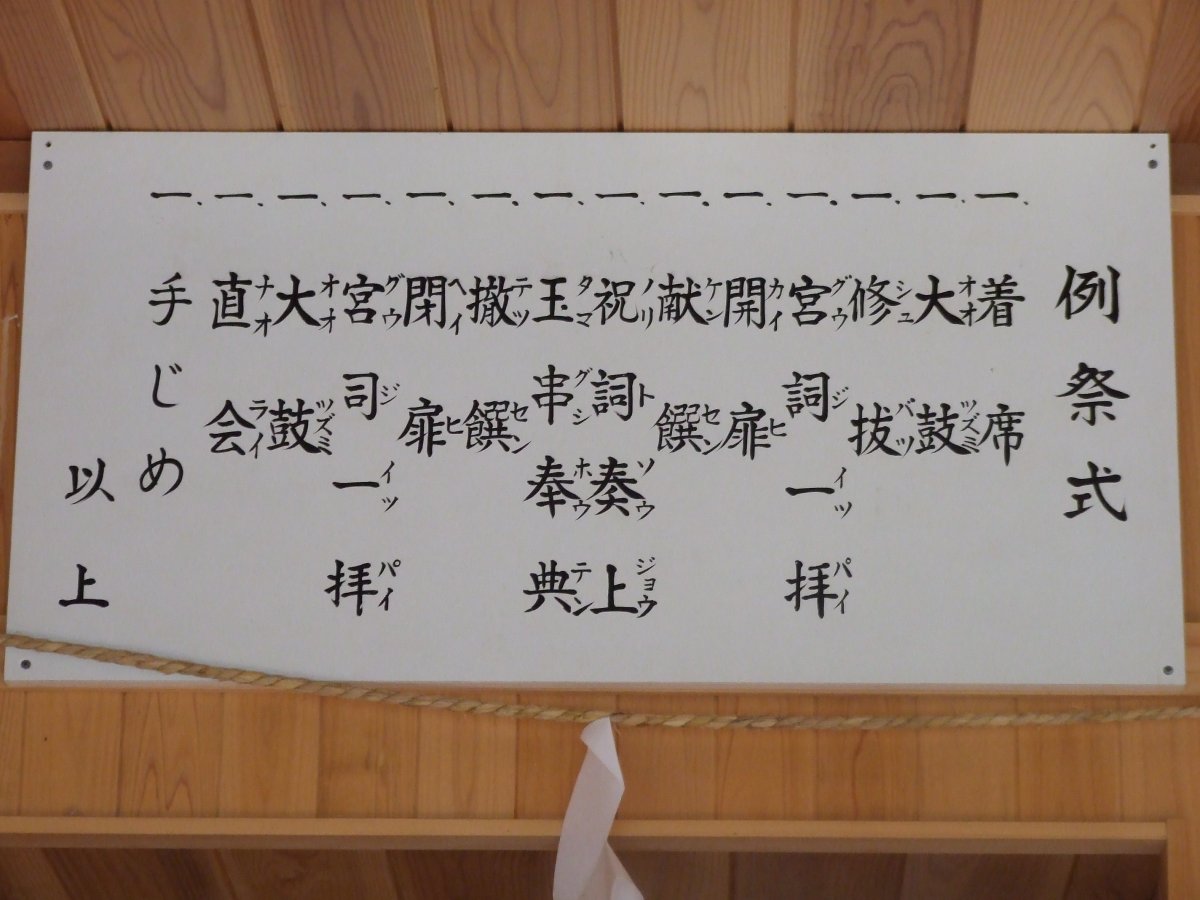 例祭式
一、着席
一、大鼓
オオツズミ
一、修拔
シュバツ
一、宮詞一拝
グウジイッパイ
一、開扉
カイヒ
一、献饌
ケンセン
一、祝詞奏上
ノリトソウジョウ
一、玉串奉典
タマグシホウテン
一、撤饌
テッセン
一、閉扉
ヘイヒ
一、宮司一拝
グウジイッパイ
一、大鼓
オオツズミ
一、直会
ナオライ
一、手じめ
以上